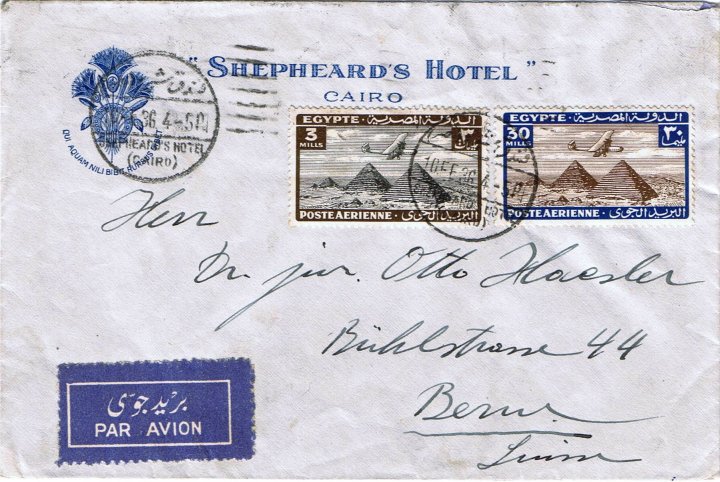 " SHEPHEARD'S HOTEL "
CAIRO
QUI AQUAM NILI BIBIT RURSUS
36 4-50
SHEPHEARD'S HOTEL
(CAIRO)
EGYPTE الدولة المصرية
3 MILLS ٣
POSTE AERIENNE البريد الجوى
EGYPTE الدولة المصرية
30 MILLS ٣٠
POSTE AERIENNE البريد الجوى
10 FE 36 4-50
Herr
Dr. jur. Otto Haesler
Bühlstrasse 44
Berne
Suisse
بريد جوى
PAR AVION